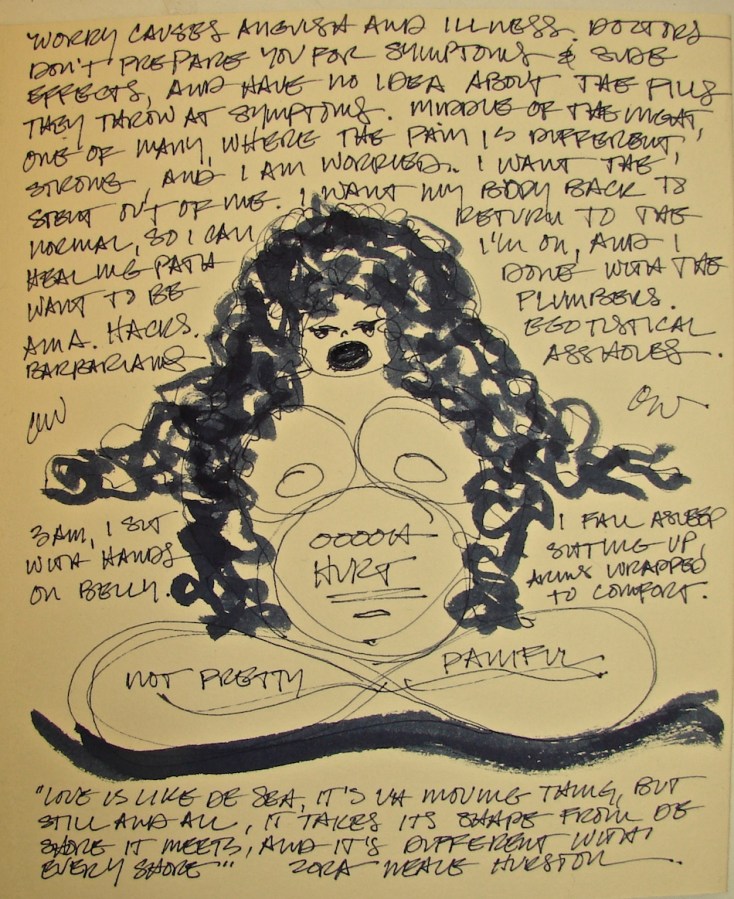 WORRY CAUSES ANGUISH AND ILLNESS. DOCTORS
DON'T PREPARE YOU FOR SYMPTOMS & SIDE
EFFECTS, AND HAVE NO IDEA ABOUT THE PILLS
THEY THROW AT SYMPTOMS. MIDDLE OF THE NIGHT,
ONE OF MANY, WHERE THE PAIN IS DIFFERENT,
STRONG, AND I AM WORRIED. I WANT THE
STENT OUT OF ME. I WANT MY BODY BACK TO
NORMAL, SO I CAN RETURN TO THE
HEALING PATH I'M ON, AND I
WANT TO BE DONE WITH THE
AMA. HACKS. PLUMBERS.
BARBARIANS EGOTISTICAL
ASSHOLES.
3AM, I SIT
WITH HANDS
ON BELLY.
I FALL ASLEEP
SITTING UP,
ARMS WRAPPED
TO COMFORT.
OOOOH
HURT
NOT PRETTY
PAINFUL.
"LOVE IS LIKE DE SEA, IT'S UH MOVING THING, BUT
STILL AND ALL, IT TAKES ITS SHAPE FROM DE
SHORE IT MEETS, AND IT'S DIFFERENT WITH
EVERY SHORE" ZORA NEALE HURSTON